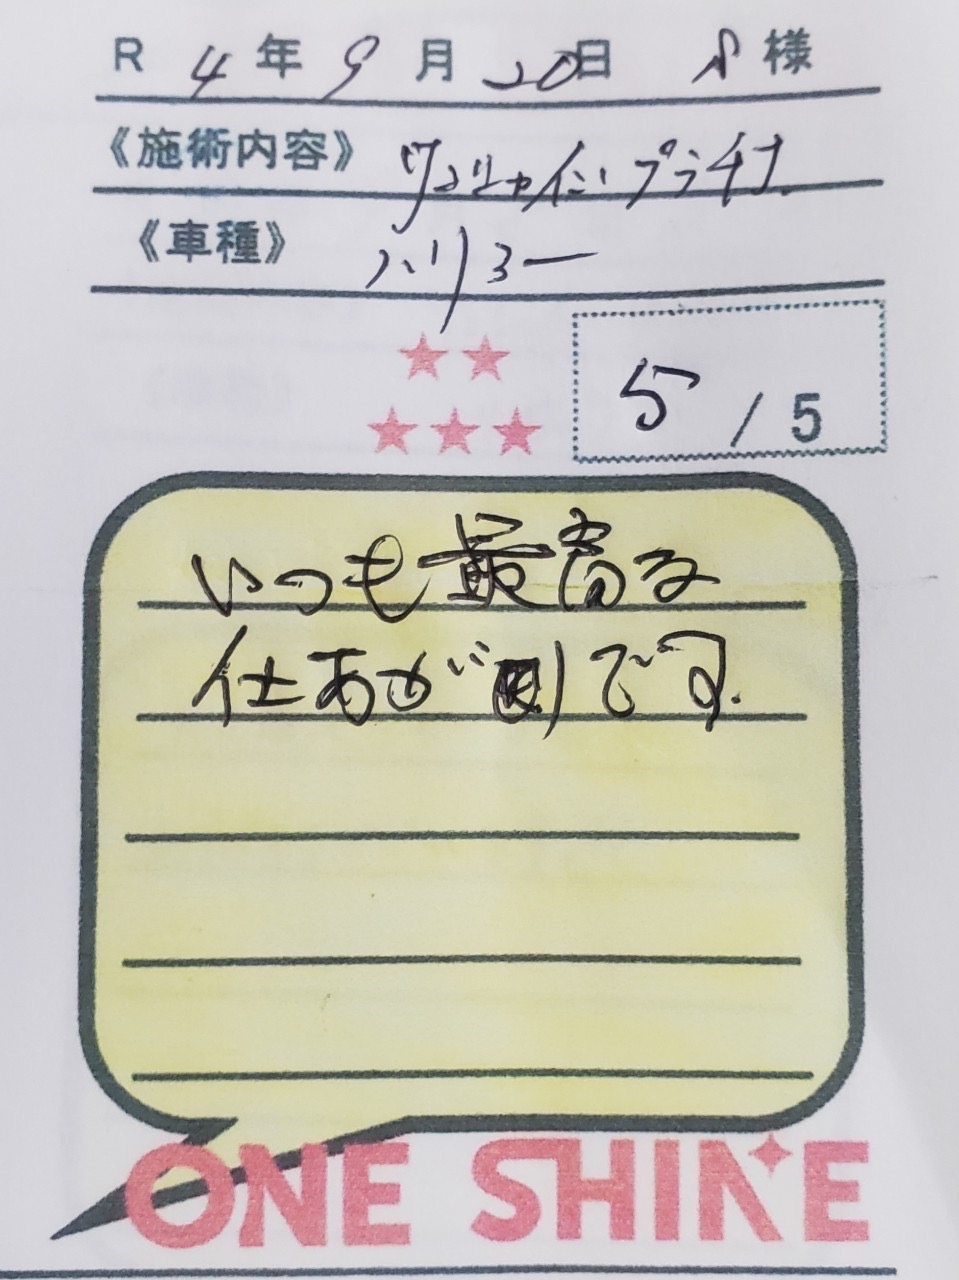 R 4年 9月 20日 S様
《施術内容》 ワンシャインプラチナ
《車種》 ハリヤー
5/5
いつも最高な
仕あがりです。
ONE SHINE